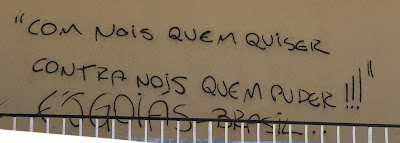 "COM NOIS QUEM QUISER
CONTRA NOIS QUEM PUDER !!!"
GOIÁS - BRASIL...